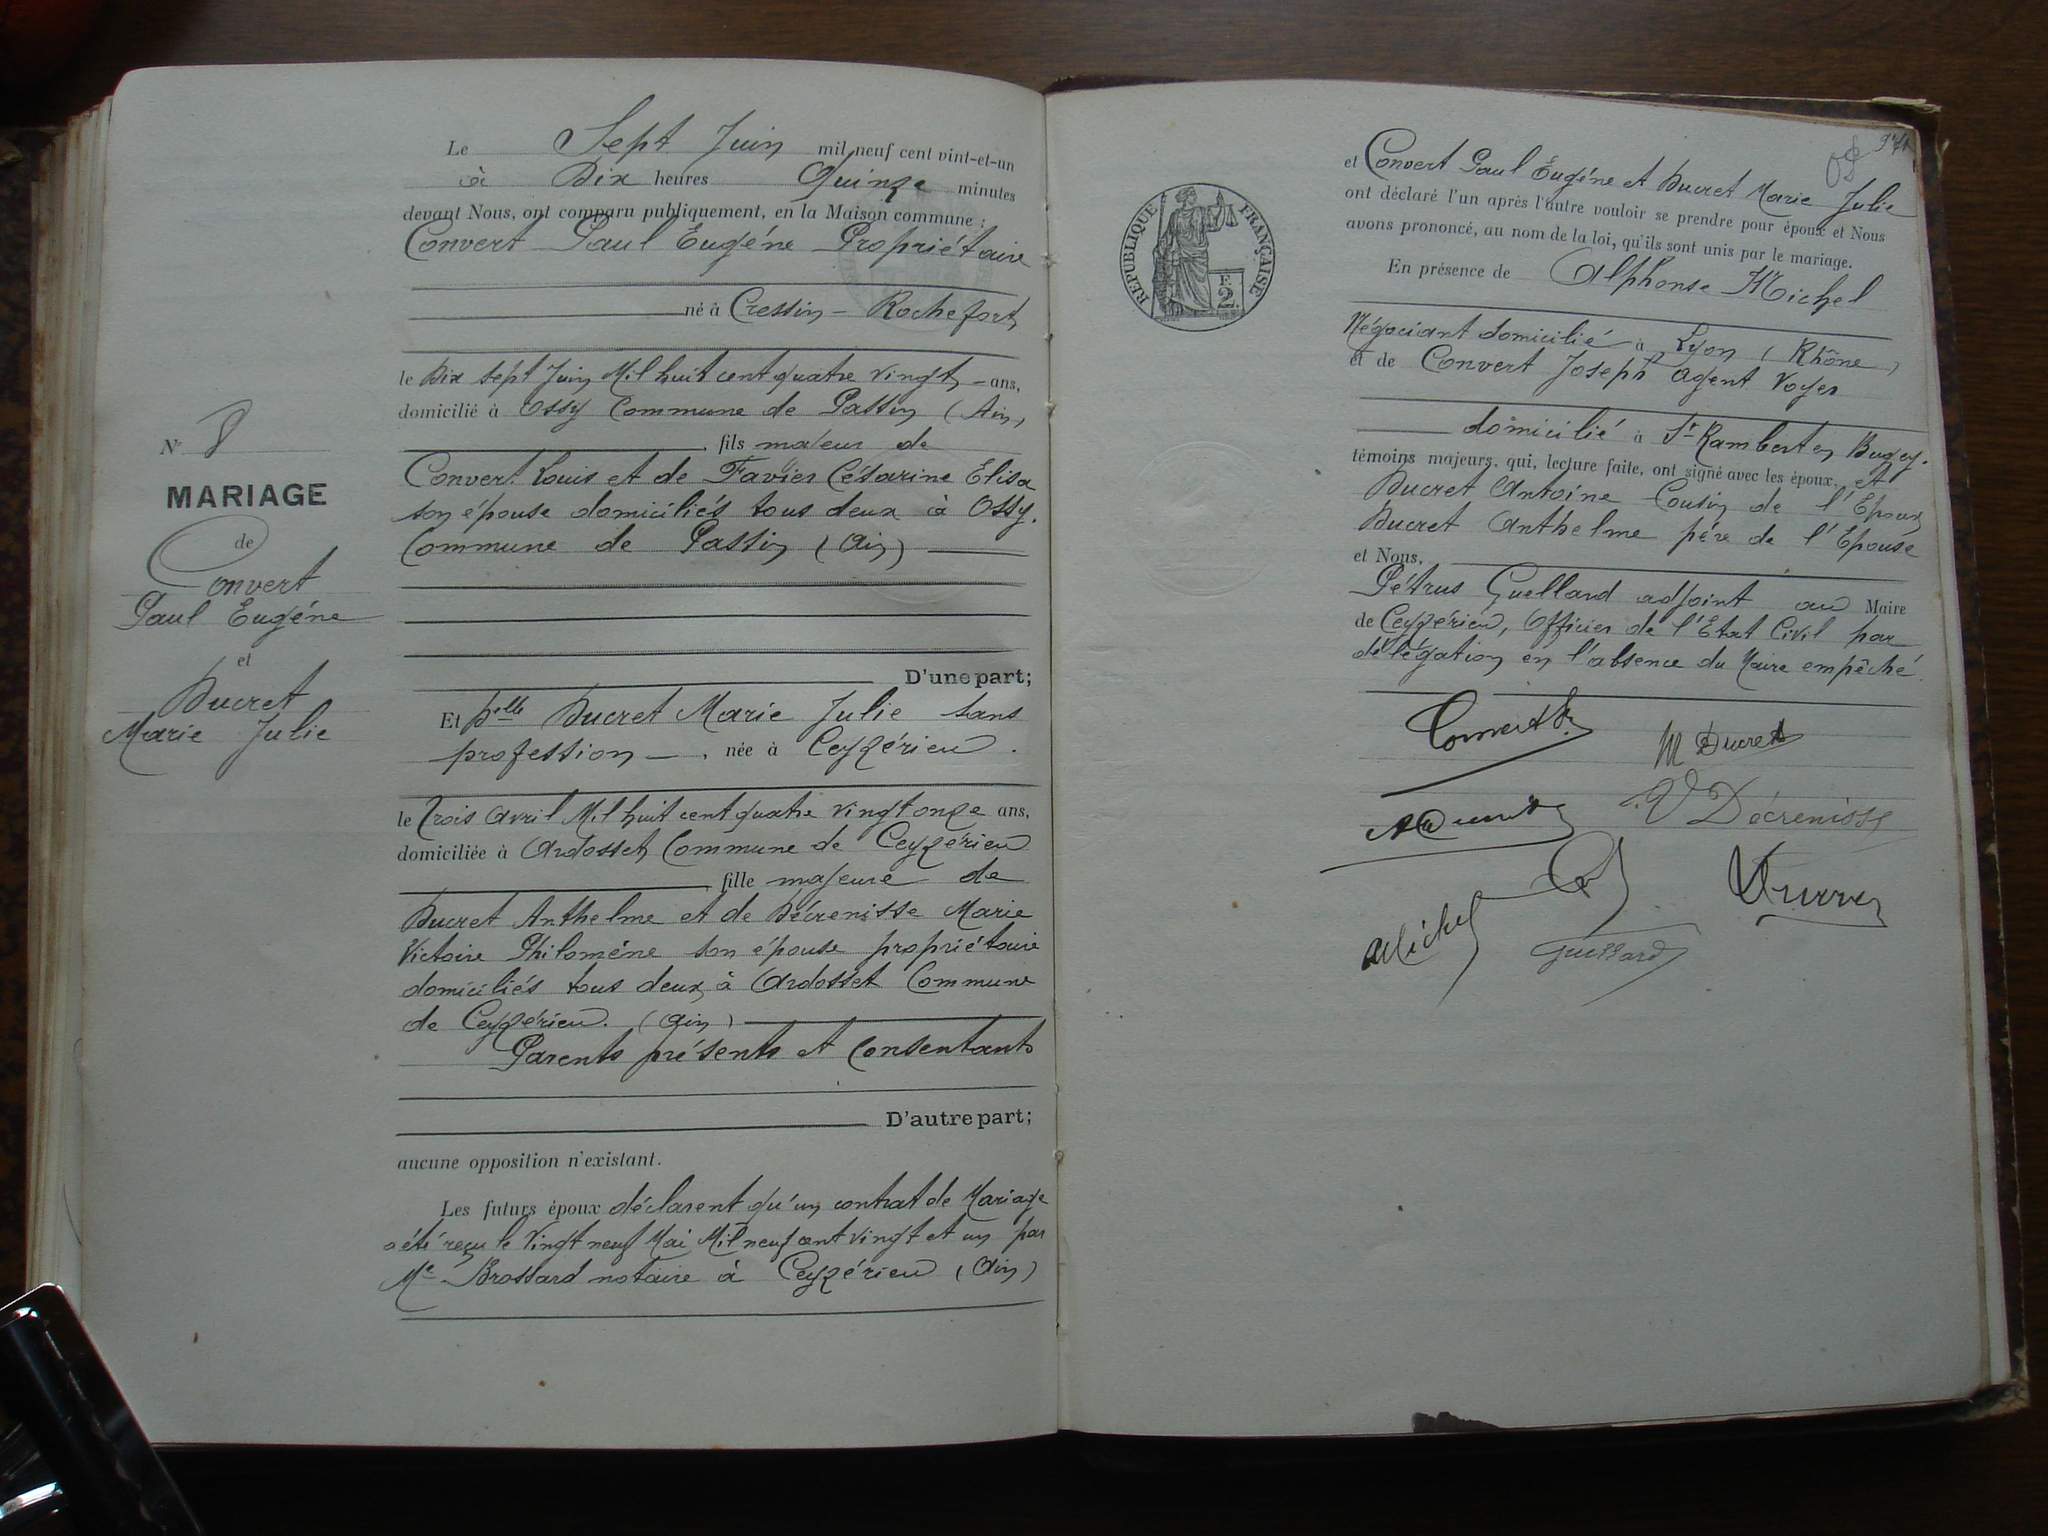 Le Sept Juin mil neuf cent vint-et-un
à Dix heures Quinze minutes
devant Nous, ont comparu publiquement, en la Maison commune :
Convert Paul Eugéne Propriétaire
né à Cressin - Rochefort
le Dix sept Juin Mil huit cent quatre vingt - ans,
domicilié à Ossy Commune de Passin (Ain)
, fils majeur de
Convert Louis et de Favier Césarine Elisa
son épouse domiciliés tous deux à Ossy.
Commune de Passin (Ain)
D'une part;
Et Delle Ducret Marie Julie sans
profession - , née à Ceyzérieu .
le Trois Avril Mil huit cent quatre vingt onze ans,
domiciliée à Ardosset Commune de Ceyzérieu
, fille majeure de
Ducret Anthelme et de Décrenisse Marie
Victoire Philoméne son épouse propriétaire
domiciliés tous deux à Ardosset Commune
de Ceyzérieu. (Ain)
Parents présents et Consentants
D'autre part;
aucune opposition n'existant.
Les futurs époux déclarent qu'un contrat de Mariage
a été reçu le Vingt neuf Mai Mil neuf cent vingt et un par
Me Brossard notaire à Ceyzérieu (Ain)
No 8
MARIAGE
de
Convert
Paul Eugéne
et
Ducret
Marie Julie
RÉPUBLIQUE FRANÇAISE
F.
2
et Convert Paul Eugéne et Ducret Marie Julie
ont déclaré l'un après l'autre vouloir se prendre pour époux et Nous
avons prononcé, au nom de la loi, qu'ils sont unis par le mariage.
En présence de Alphonse Michel
Négociant domicilié à Lyon (Rhône)
et de Convert Joseph Agent Voyer
domicilié à St Rambert en Bugey.
témoins majeurs, qui, lecture faite, ont signé avec les époux, et
Ducret Antoine Cousin de l'Epoux
Ducret Anthelme pére de l'Epouse
et Nous,
Pétrus Guelland adjoint au Maire
de Ceyzérieu, Officier de l'Etat Civil par
délégation en l'absence du Maire empêché.
Convert
M Ducret
V Décrenisse
Michel